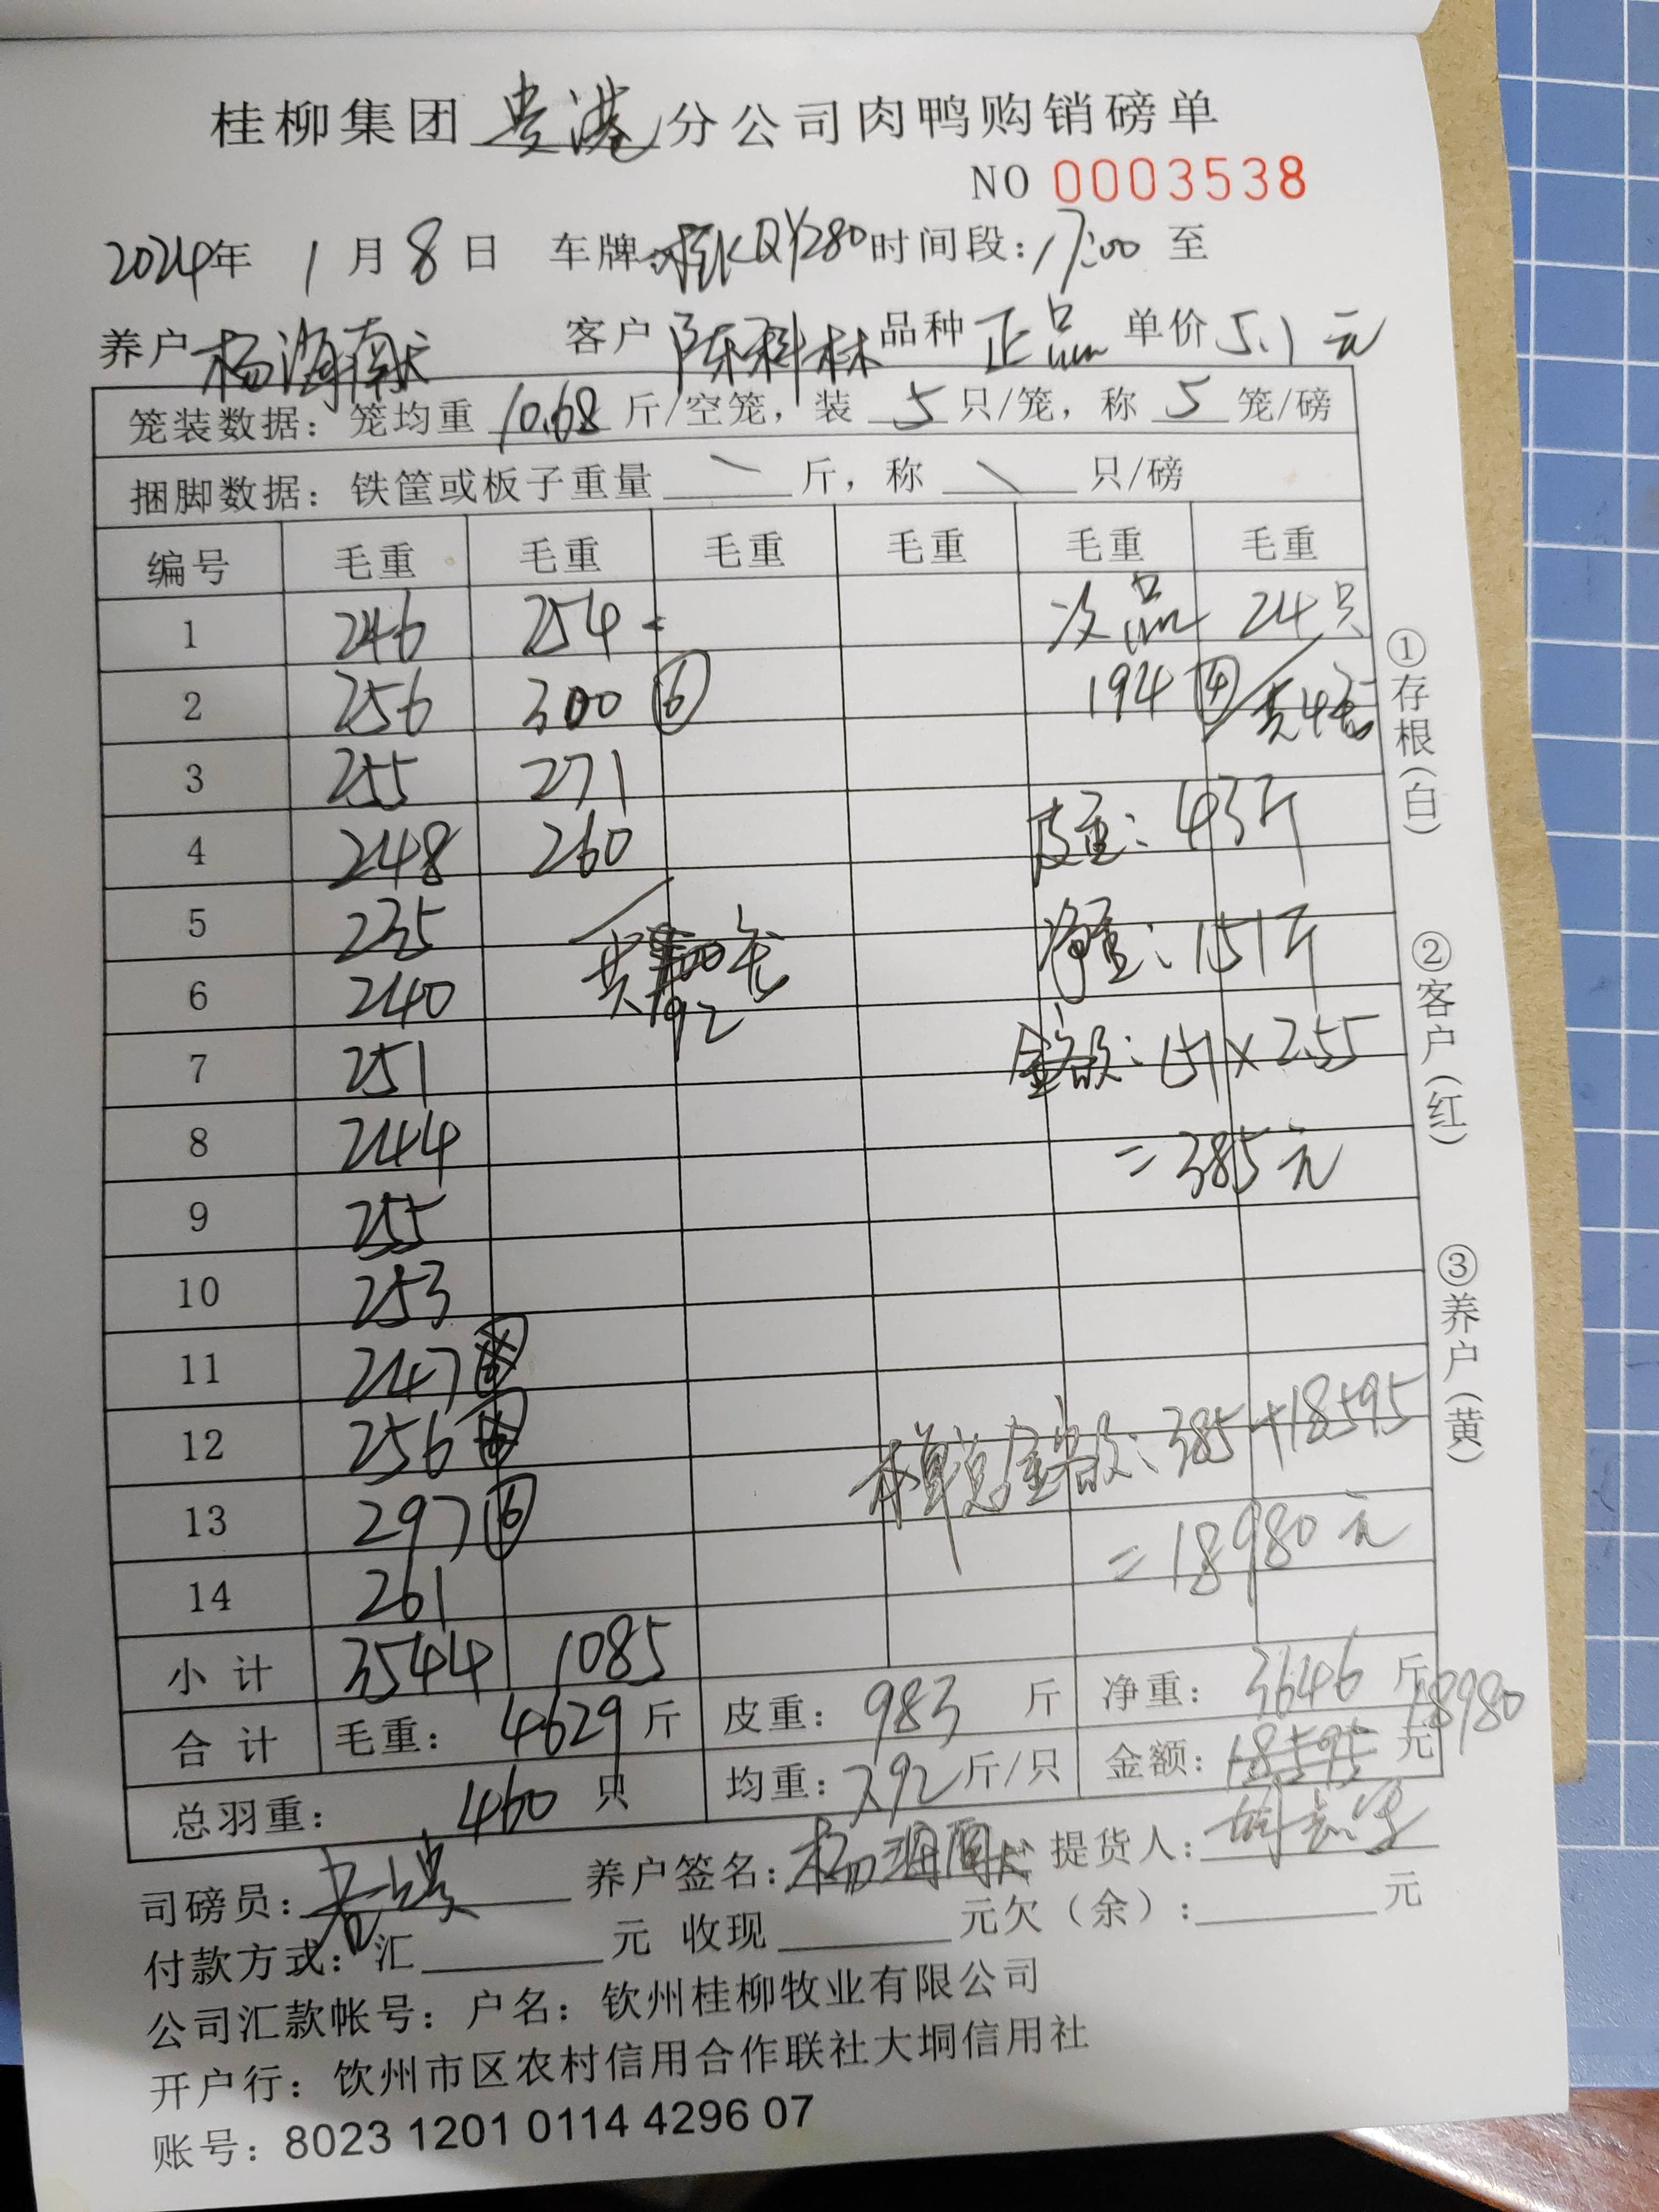 桂柳集团贵港分公司肉鸭购销磅单
NO 0003538
2024年 1月8日 车牌:桂KQY280 时间段:17:00 至
养户 杨海 客户 陈科林 品种 正品 单价 5.1元
笼装数据: 笼均重 10.68 斤/空笼, 装 5 只/笼, 称 5 笼/磅
捆脚数据: 铁筐或板子重量 \ 斤, 称 \ 只/磅
编号 毛重 毛重 毛重 毛重 毛重 毛重
1 246 254 次品 24只
2 256 300 ⑥ 194 ④
3 255 271
4 248 260 皮重: 43斤
5 235 净重: 151斤
6 240 共 92
7 251 金额: 151×2.55
8 244 =385元
9 255
10 253
11 247
12 256 本单总金额: 385+18595
13 297 ⑥ =18980元
14 261
小计 3544 1085
合计 毛重: 4629斤 皮重: 983 斤 净重: 3646 斤 18980
总羽重: 460 只 均重: 7.92斤/只 金额: 18595 元
司磅员: 养户签名: 杨海 提货人:
付款方式: 汇 元 收现 元欠(余): 元
公司汇款帐号: 户名: 钦州桂柳牧业有限公司
开户行: 钦州市区农村信用合作联社大垌信用社
账号: 8023 1201 0114 4296 07
①存根(白)
②客户(红)
③养户(黄)